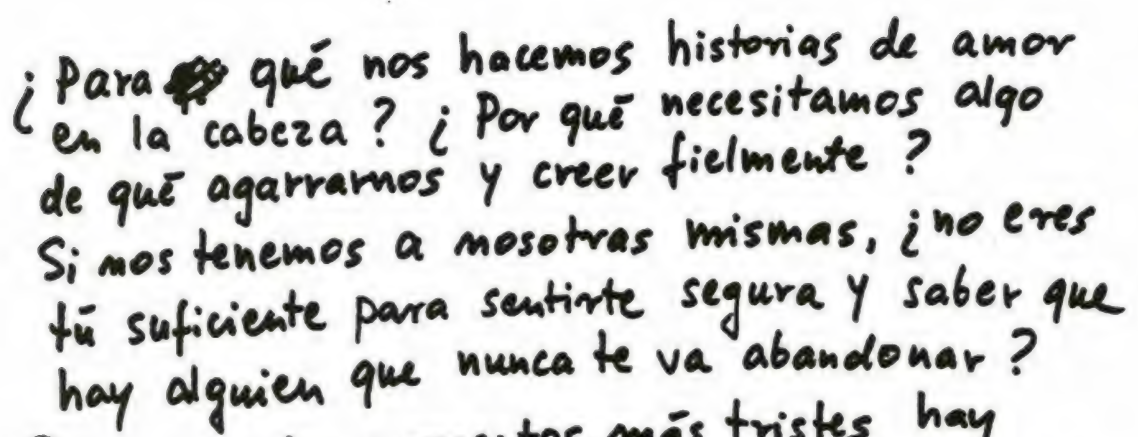 ¿Para qué nos hacemos historias de amor
en la cabeza? ¿Por qué necesitamos algo
de qué agarrarnos y creer fielmente?
Si nos tenemos a nosotras mismas, ¿no eres
tú suficiente para sentirte segura y saber que
hay alguien que nunca te va abandonar?
más tristes hay